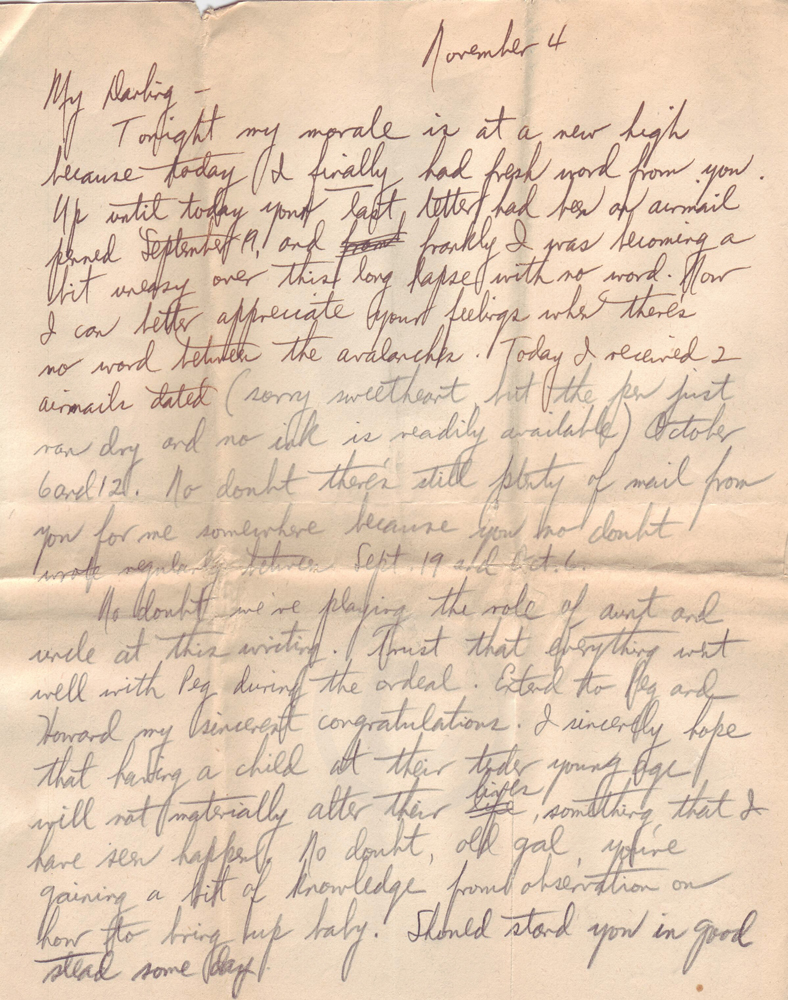 November 4
My Darling -
Tonight my morale is at a new high
because today I finally had fresh word from you.
Up until today your last letter had been an airmail
penned September 19, and frankly I was becoming a
bit uneasy over this long lapse with no word. Now
I can better appreciate your feelings when there's
no word between the avalanches. Today I received 2
airmails dated (sorry sweetheart, but the pen just
ran dry and no ink is readily available) October
6 and 12. No doubt there's still plenty of mail from
you for me somewhere because you no doubt
wrote regularly between Sept. 19 and Oct. 6.
No doubt we're playing the role of aunt and
uncle at this writing. Trust that everything went
well with Peg during the ordeal. Extend to Peg and
Howard my sincerest congratulations. I sincerely hope
that having a child at their tender young age
will not materially alter their lives, something that I
have seen happen. No doubt, old gal, you're
gaining a bit of knowledge from observation on
how to bring up baby. Should stand you in good
stead some day.